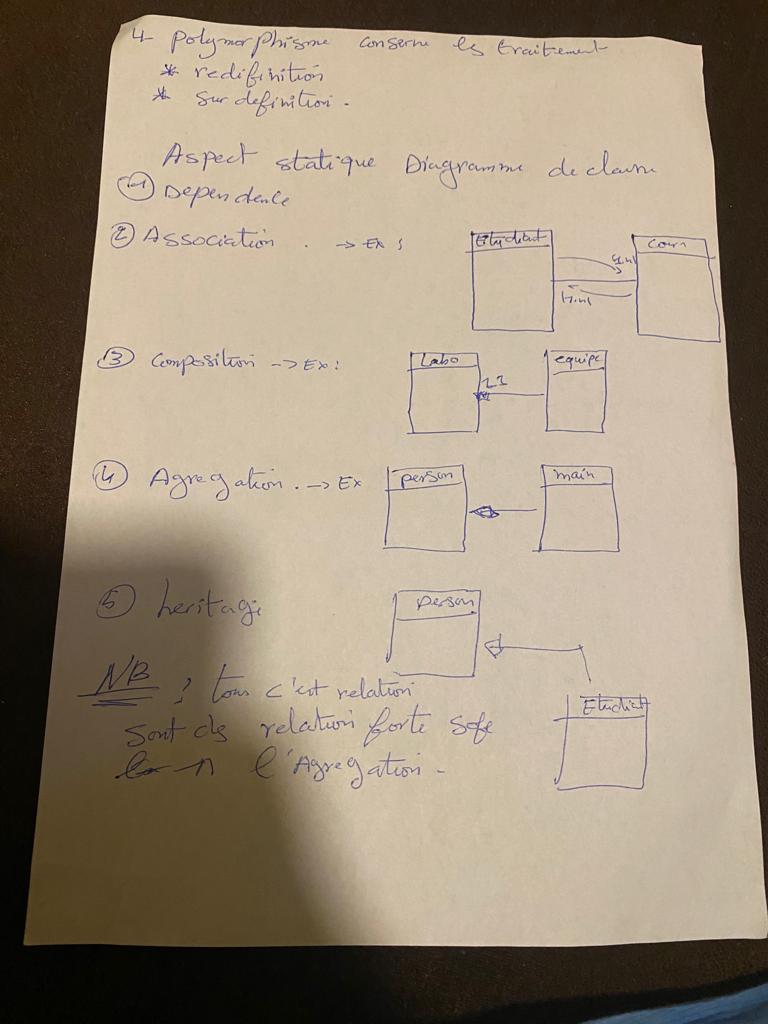 4- polymorphisme conserne les traitement
* redifinition
* Sur definition.
Aspect statique Diagramme de classe
1 Dependence
2 Association . -> Ex :
Etudiant
Cours
1..n
3 Composition -> Ex :
Labo
equipe
1
4 Agregation . -> Ex
person
main
5 heritage
person
NB : tous c'est relation
sont des relation forte sofe
l'Agregation.
Etudiant